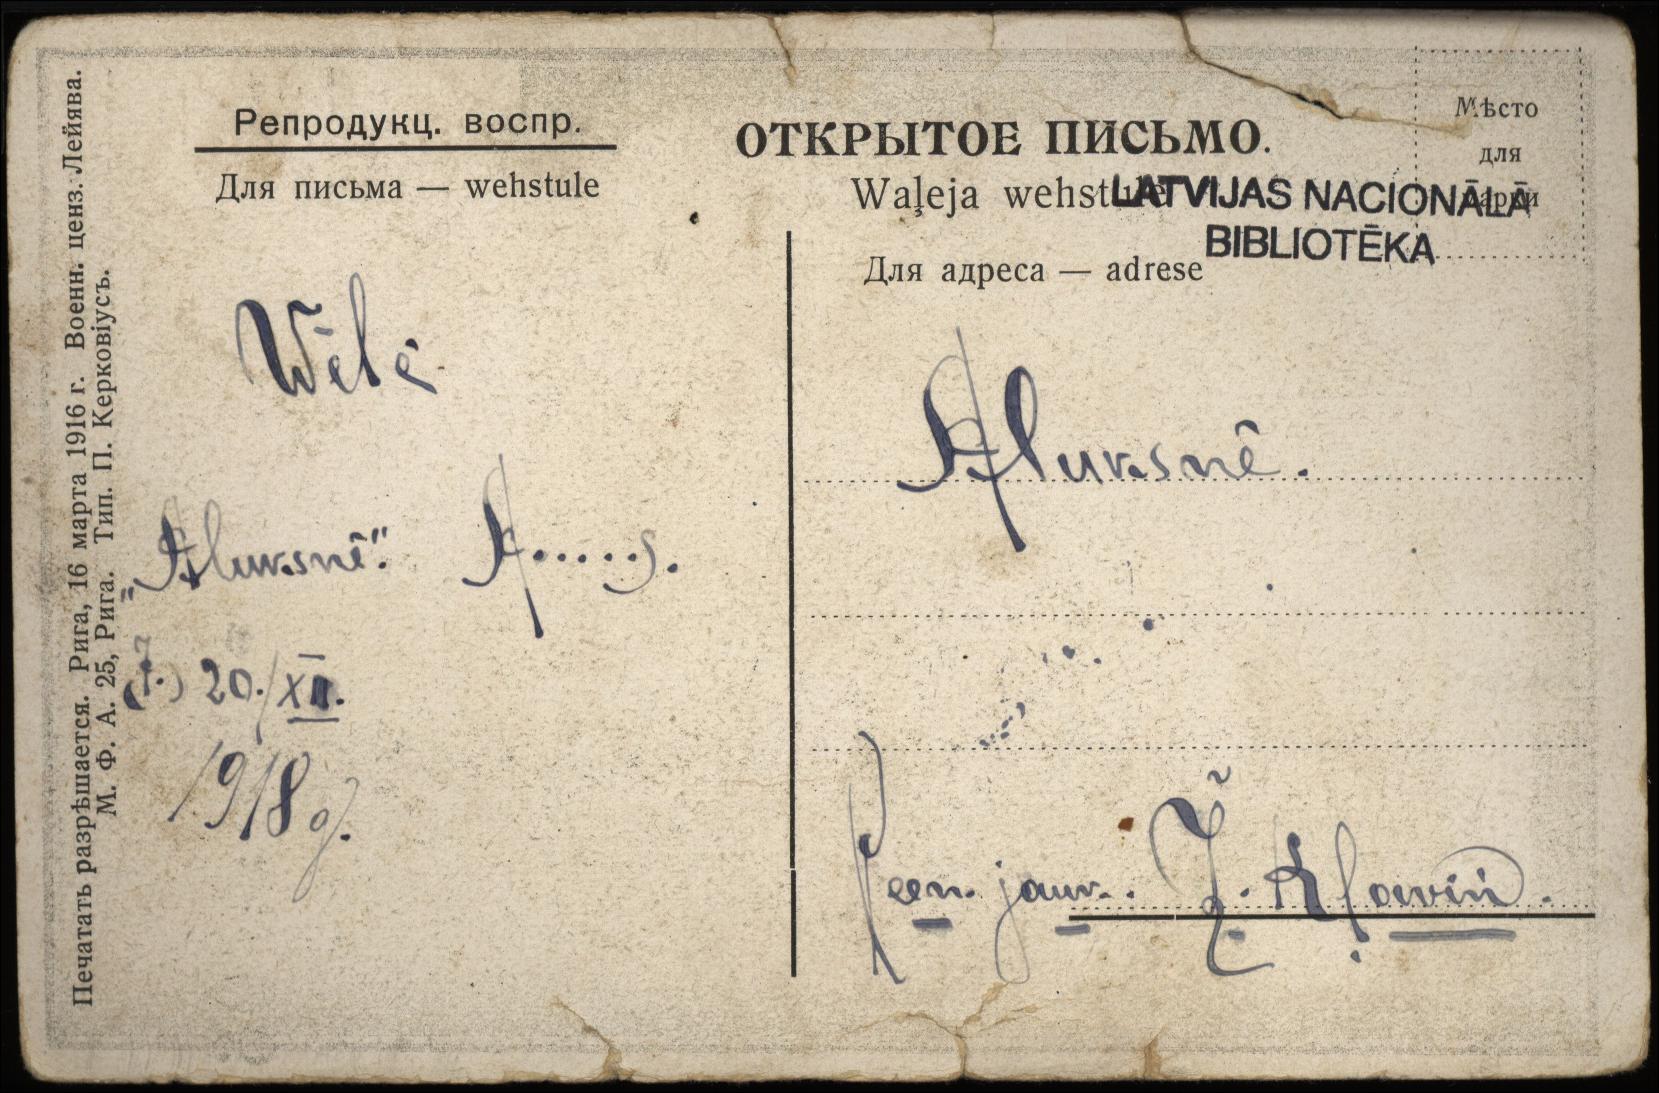 Печатать разрѣшается. Рига, 16 марта 1916 г. Военн. ценз. Лейява.
М. Ф. А. 25, Рига. Тип. П. Керковіусъ.
Репродукц. воспр.
Для письма — wehstule
Wēlē
„Aluksnē". A.....s.
(7.) 20./XII.
1918 g.
ОТКРЫТОЕ ПИСЬМО.
Waļeja wehstule
Для адреса — adrese
Мѣсто
для
марки
LATVIJAS NACIONĀLĀ
BIBLIOTĒKA
Aluksnē.
jaun. Ž. Kļaviń.